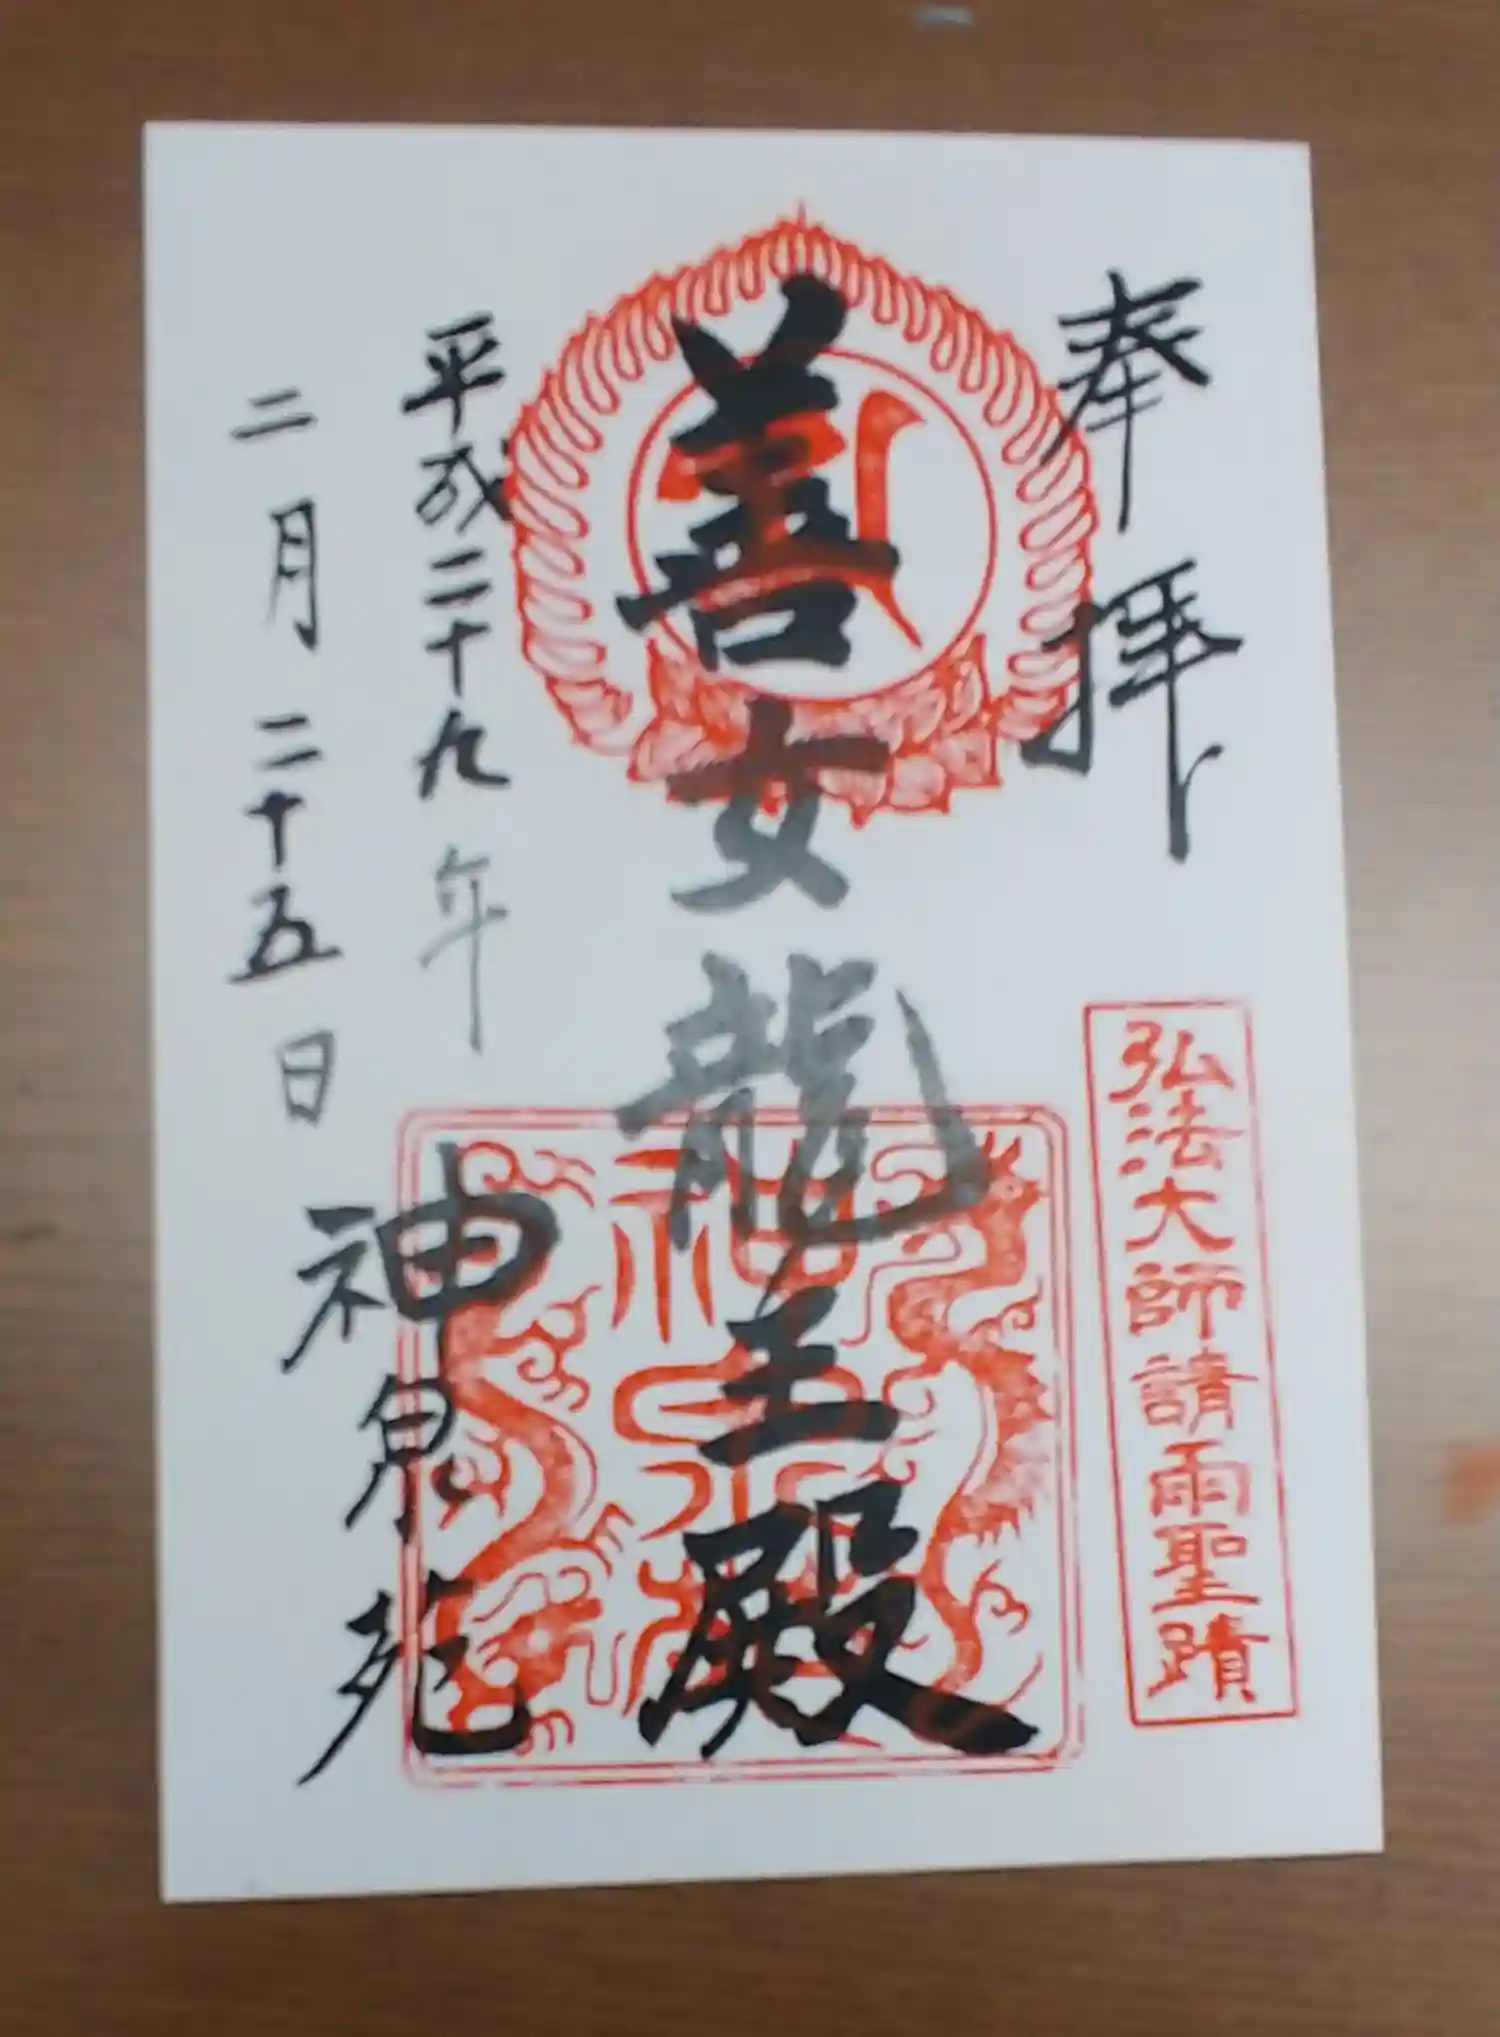 奉拝
弘法大師請雨聖蹟
善女龍王殿
平成二十九年
二月二十五日
神泉苑
神泉苑